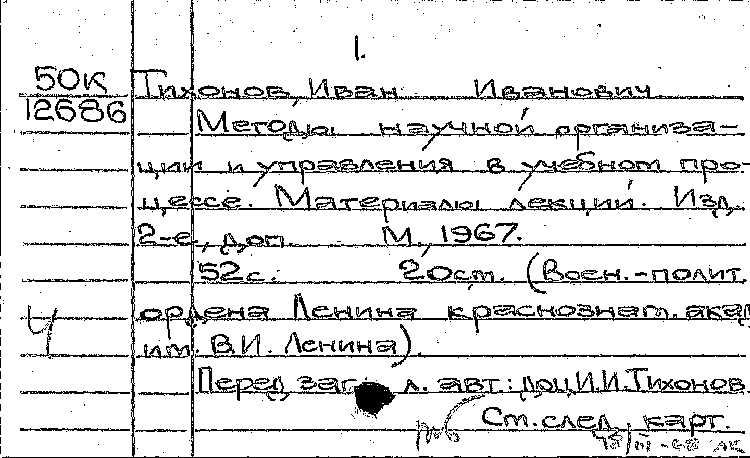 1.
50К Тихонов, Иван Иванович
12686
Методы научной организа-
ции и управления в учебном про-
цессе. Материалы лекций. Изд.
2-е, доп. М., 1967.
52с. 20см. (Воен.-полит.
ордена Ленина краснознам. акад
им. В.И. Ленина).
Ч
Перед заг л. авт.: доц. И.И. Тихонов
См. след. карт.